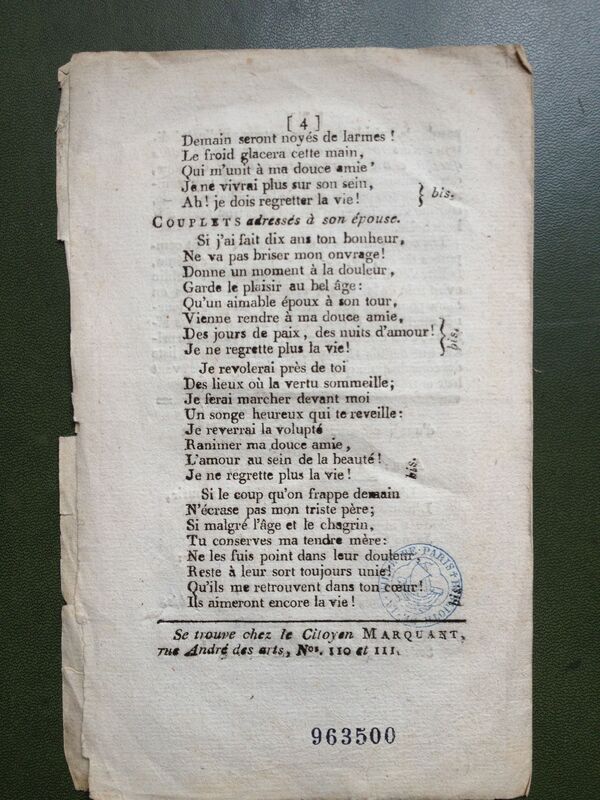 [ 4 ]
Demain seront noyés de larmes !
Le froid glacera cette main,
Qui m'unit à ma douce amie'
Je ne vivrai plus sur son sein,
Ah! je dois regretter la vie! } bis.
COUPLETS adressés à son épouse.
Si j'ai fait dix ans ton bonheur,
Ne va pas briser mon onvrage!
Donne un moment à la douleur,
Garde le plaisir au bel âge:
Qu'un aimable époux à son tour,
Vienne rendre à ma douce amie,
Des jours de paix, des nuits d'amour!
Je ne regrette plus la vie! } bis.
Je revolerai près de toi
Des lieux où la vertu sommeille;
Je ferai marcher devant moi
Un songe heureux qui te reveille:
Je reverrai la volupté
Ranimer ma douce amie,
L'amour au sein de la beauté!
Je ne regrette plus la vie! bis.
Si le coup qu'on frappe demain
N'écrase pas mon triste père;
Si malgré l'âge et le chagrin,
Tu conserves ma tendre mère:
Ne les fuis point dans leur douleur,
Reste à leur sort toujours unie!
Qu'ils me retrouvent dans ton cœur!
Ils aimeront encore la vie! bis
Se trouve chez le Citoyen MARQUANT,
rue André des arts, Nos. 110 et 111.
PARIS
963500